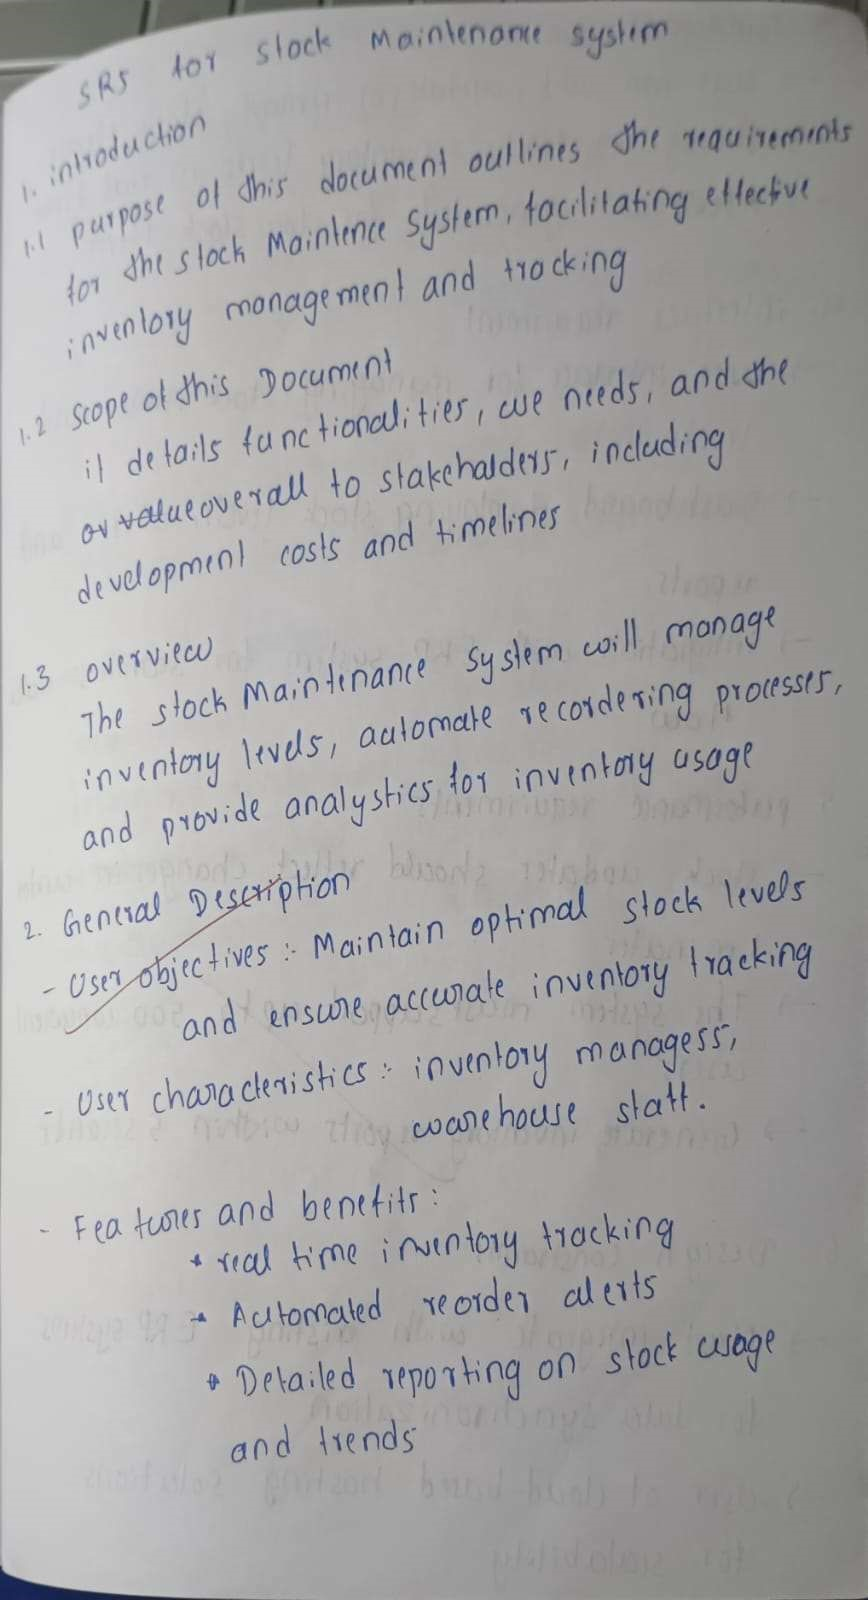 SRS for stock Maintenance system
1. introduction
1.1 purpose of this document outlines the requirements
for the stock Maintence System, facilitating effective
inventory management and tracking
1.2 Scope of this Document
it details functionalities, we needs, and the
overall to stakehalders, including
development costs and timelines
1.3 overview
The stock Maintenance System will manage
inventory levels, automate recordering processes,
and provide analystics for inventory usage
2. General Description
- User objectives :- Maintain optimal stock levels
and ensure accurate inventory tracking
- User characteristics :- inventory managess,
warehouse staff.
- Features and benefits :
* real time inventory tracking
* Automated reorder alerts
* Detailed reporting on stock usage
and trends